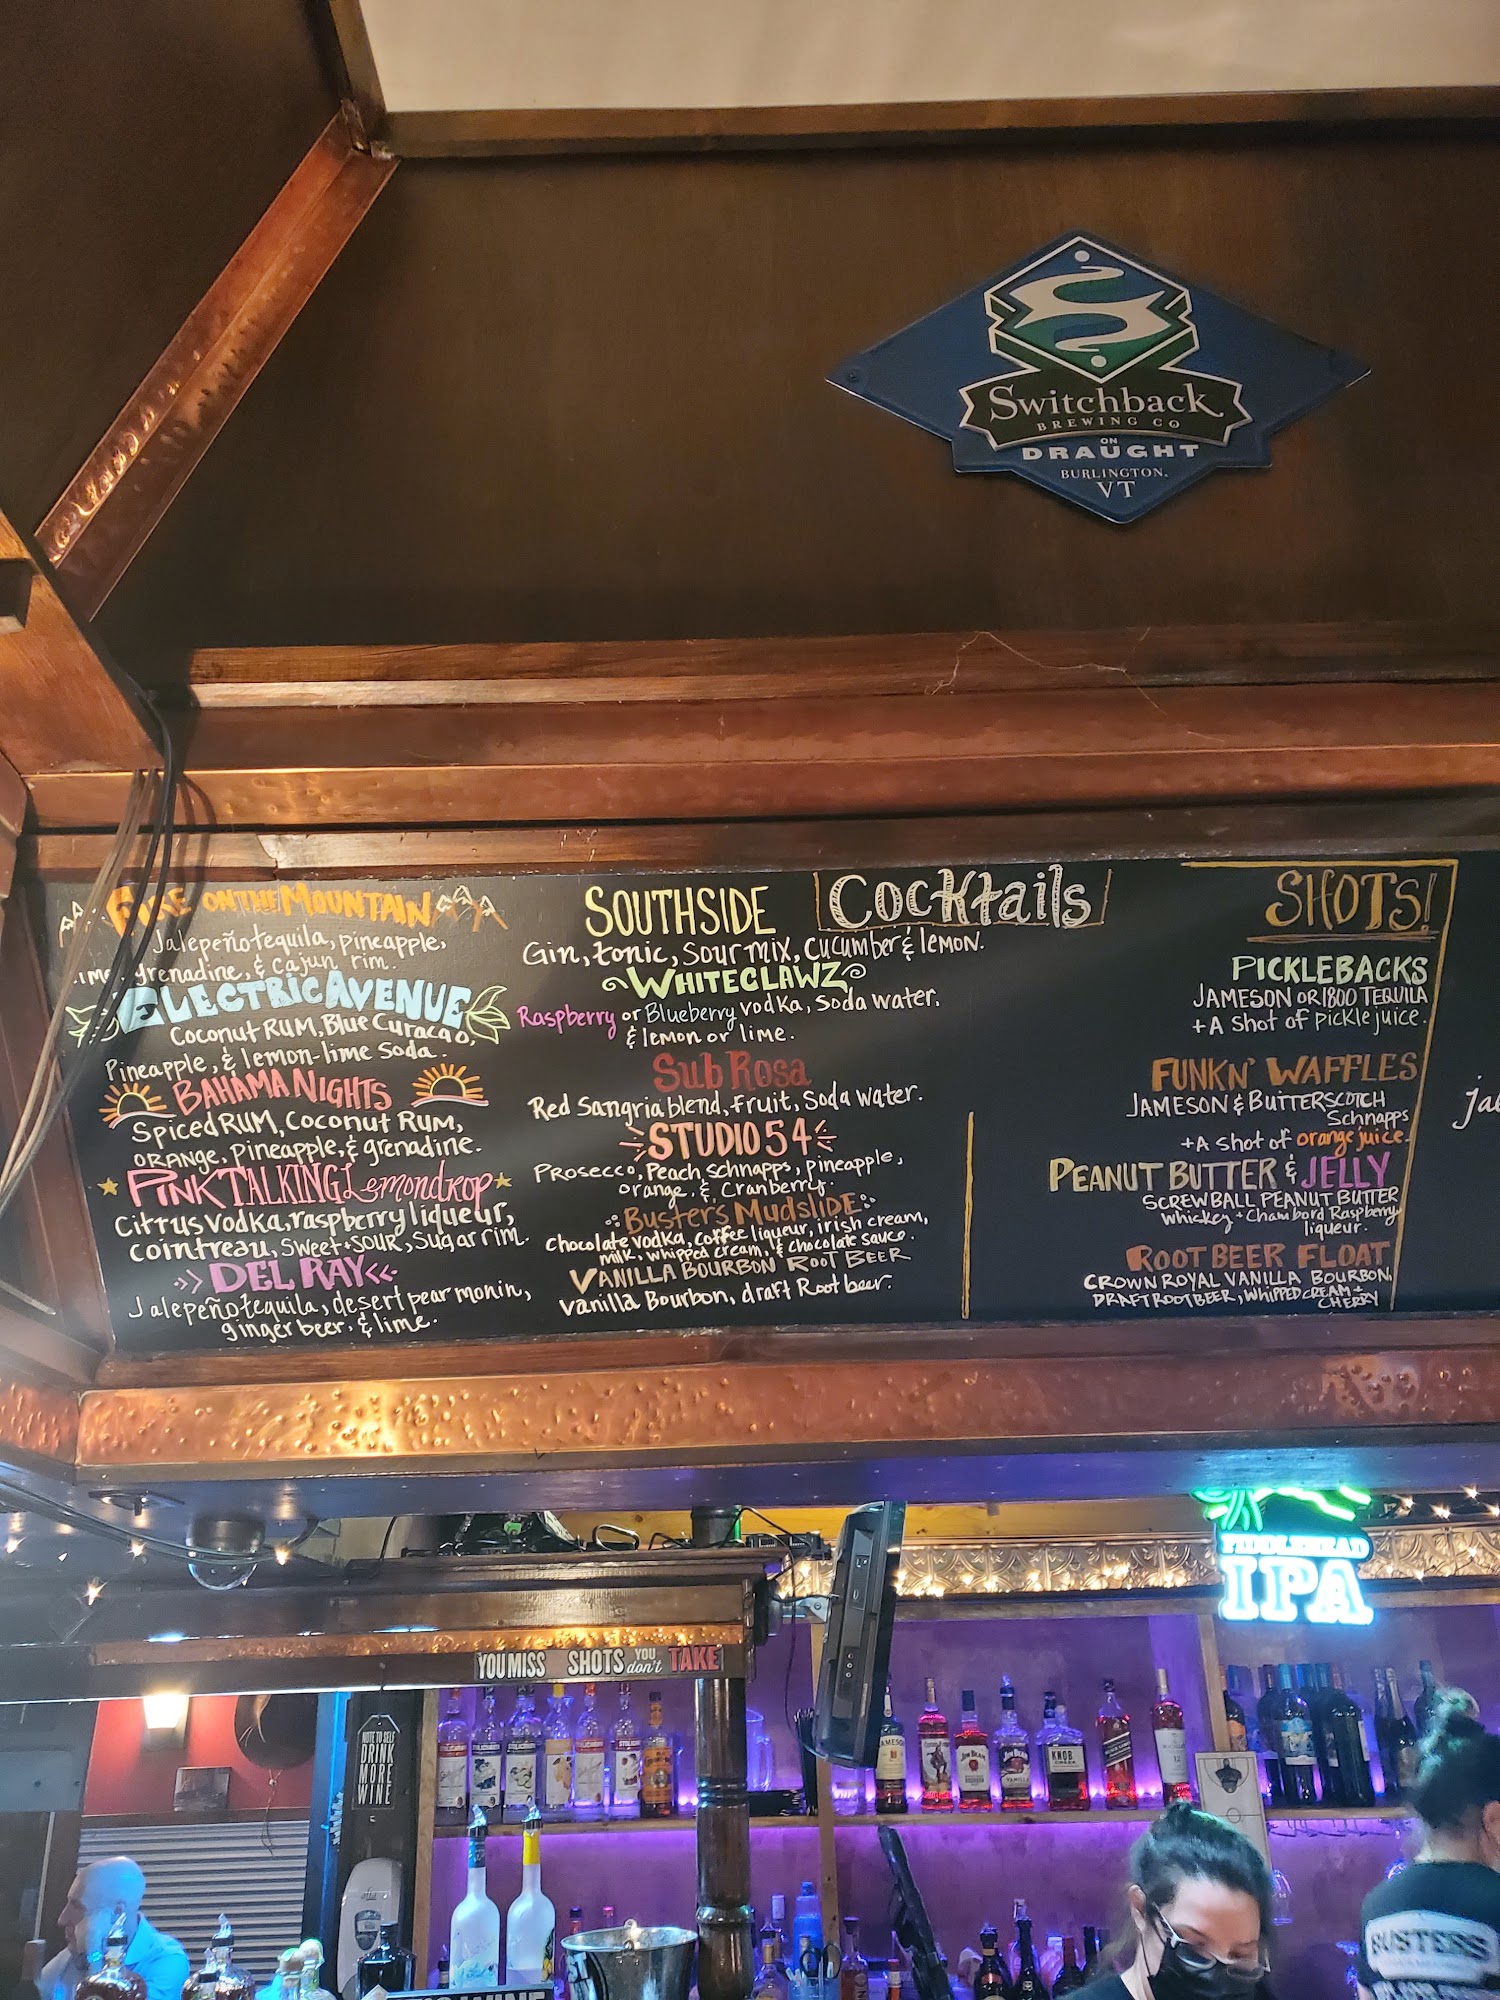 Switchback
BREWING CO
ON
DRAUGHT
BURLINGTON,
VT
FIRE ON THE MOUNTAIN
Jalepeño tequila, pineapple,
lime, grenadine, & cajun rim.
ELECTRIC AVENUE
Coconut RUM, Blue Curacao,
Pineapple, & lemon-lime soda.
BAHAMA NIGHTS
Spiced RUM, Coconut RUM,
ORANGE, pineapple, & grenadine.
PINK TALKING Lemondrop
Citrus vodka, raspberry liqueur,
cointreau, sweet + sour, sugar rim.
DEL RAY
Jalepeño tequila, desert pear monin,
ginger beer, & lime.
Cocktails
SOUTHSIDE
Gin, tonic, sour mix, cucumber & lemon.
WHITECLAWZ
Raspberry or Blueberry vodka, soda water,
& lemon or lime.
Sub Rosa
Red Sangria blend, fruit, soda water.
STUDIO 54
Prosecco, Peach schnapps, pineapple,
orange, & cranberry.
Buster's MudsliDE
chocolate vodka, coffee liqueur, irish cream,
milk, whipped cream, & chocolate sauce.
VANILLA BOURBON ROOT BEER
vanilla Bourbon, draft Root beer.
SHOTS!
PICKLEBACKS
JAMESON OR 1800 TEQUILA
+ A shot of pickle juice.
FUNKN' WAFFLES
JAMESON & BUTTERSCOTCH
Schnapps
+ A shot of orange juice.
PEANUT BUTTER & JELLY
SCREWBALL PEANUT BUTTER
whiskey + Chambord Raspberry
liqueur.
ROOT BEER FLOAT
CROWN ROYAL VANILLA BOURBON,
DRAFT ROOT BEER, WHIPPED CREAM +
CHERRY
FIDDLEHEAD
IPA
YOU MISS SHOTS YOU don't TAKE
NOTE TO SELF
DRINK
MORE
WINE
JAMESON
JIM BEAM
JIM BEAM
KNOB
CREEK
BUSTERS